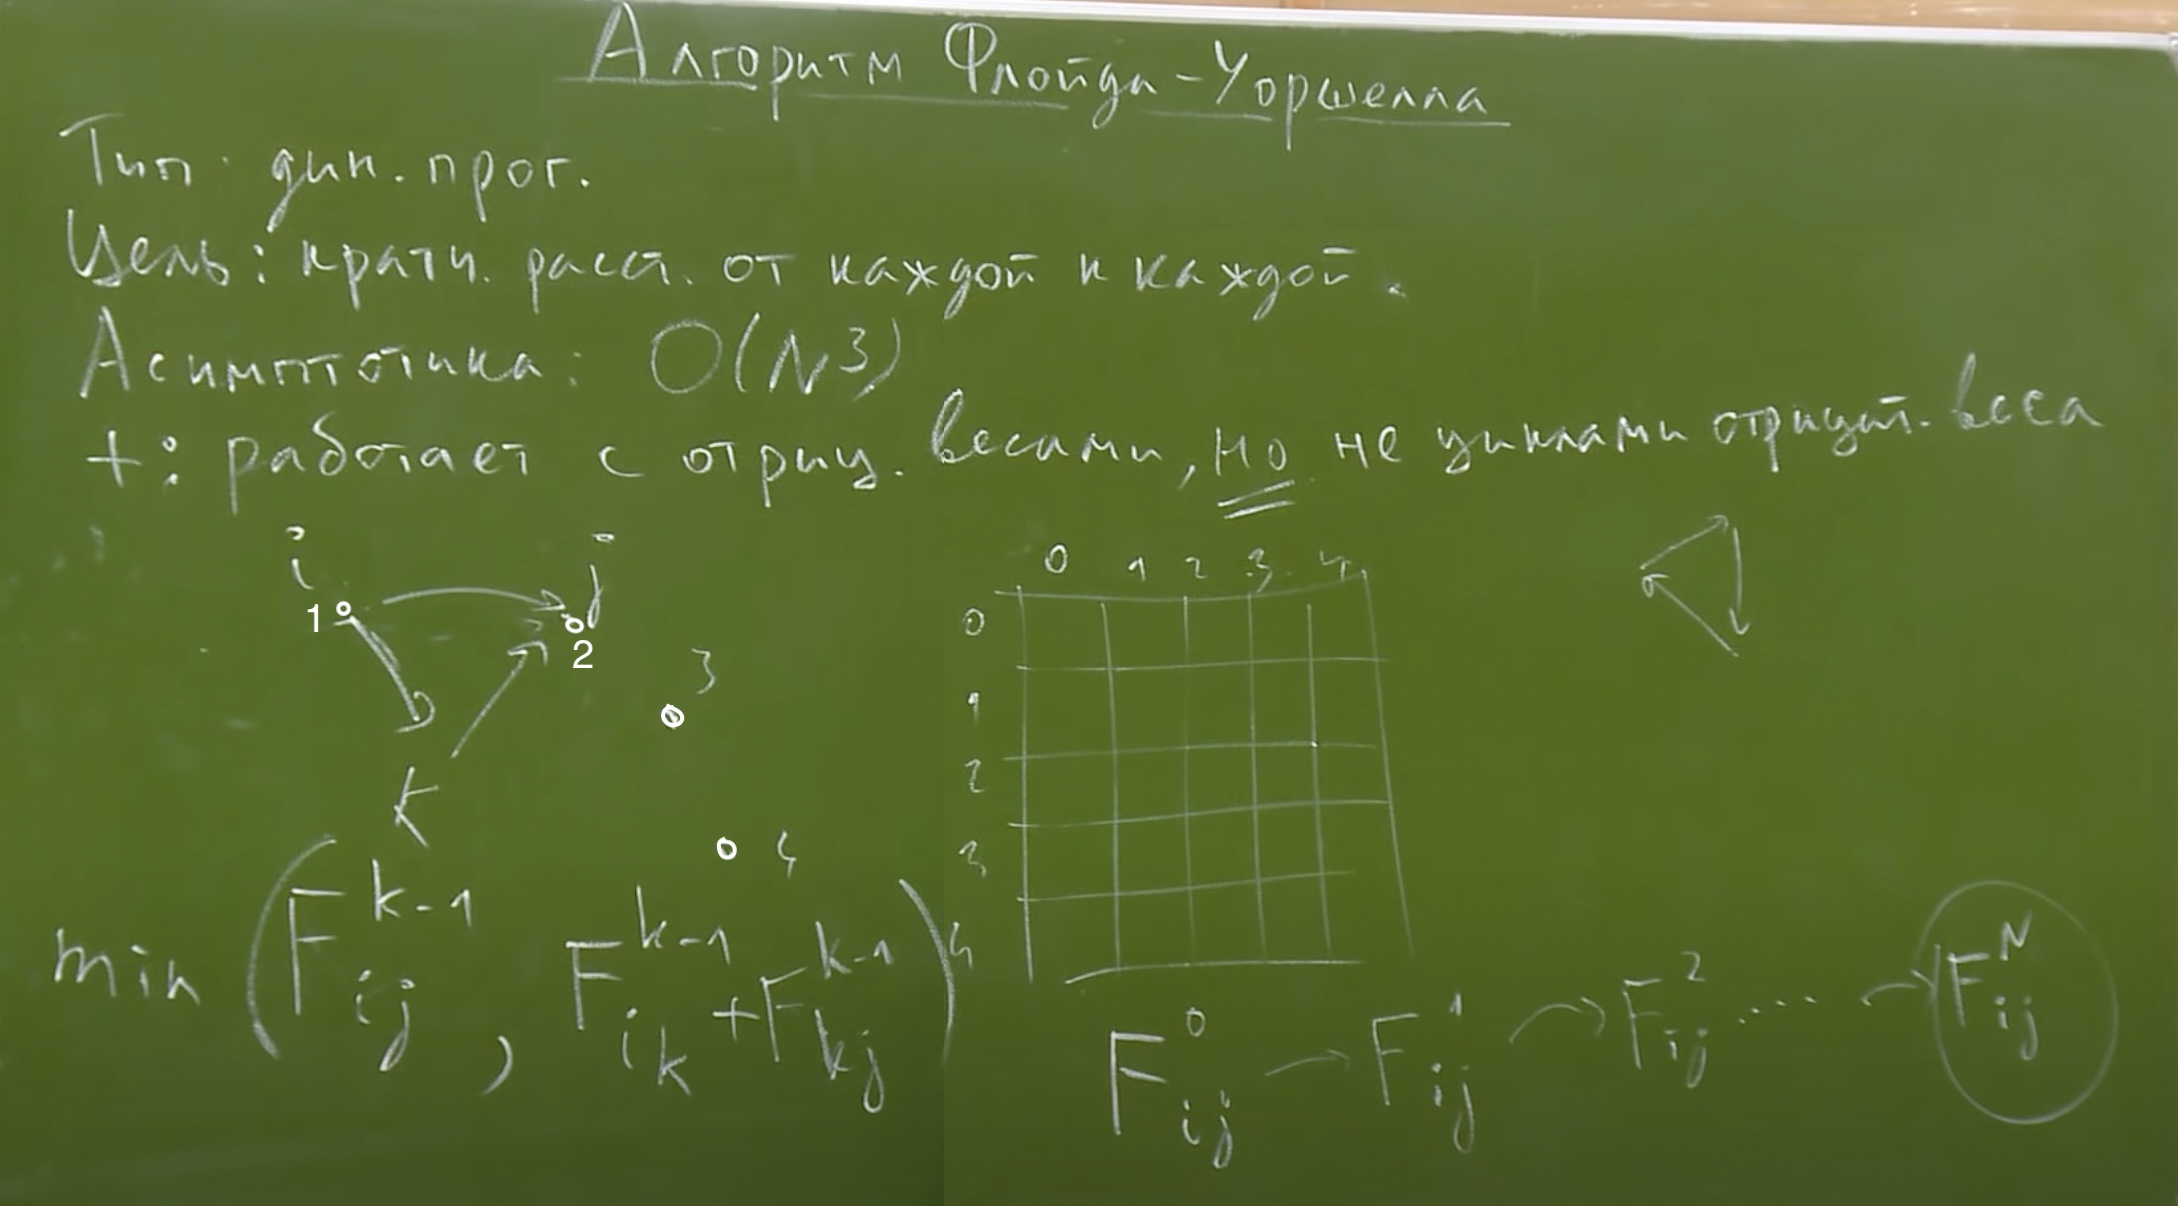 Алгоритм Флойда-Уоршелла
Тип: дин. прог.
Цель: кратч. расст. от каждой к каждой.
Асимптотика: O(N³)
+: работает с отриц. весами, но не циклами отрицат. веса
i j
1 2
3
k
4
min (Fᵢⱼᵏ⁻¹, Fᵢₖᵏ⁻¹ + Fₖⱼᵏ⁻¹)
0 1 2 3 4
0
1
2
3
4
Fᵢⱼ⁰ → Fᵢⱼ¹ → Fᵢⱼ² .... → Fᵢⱼᴺ